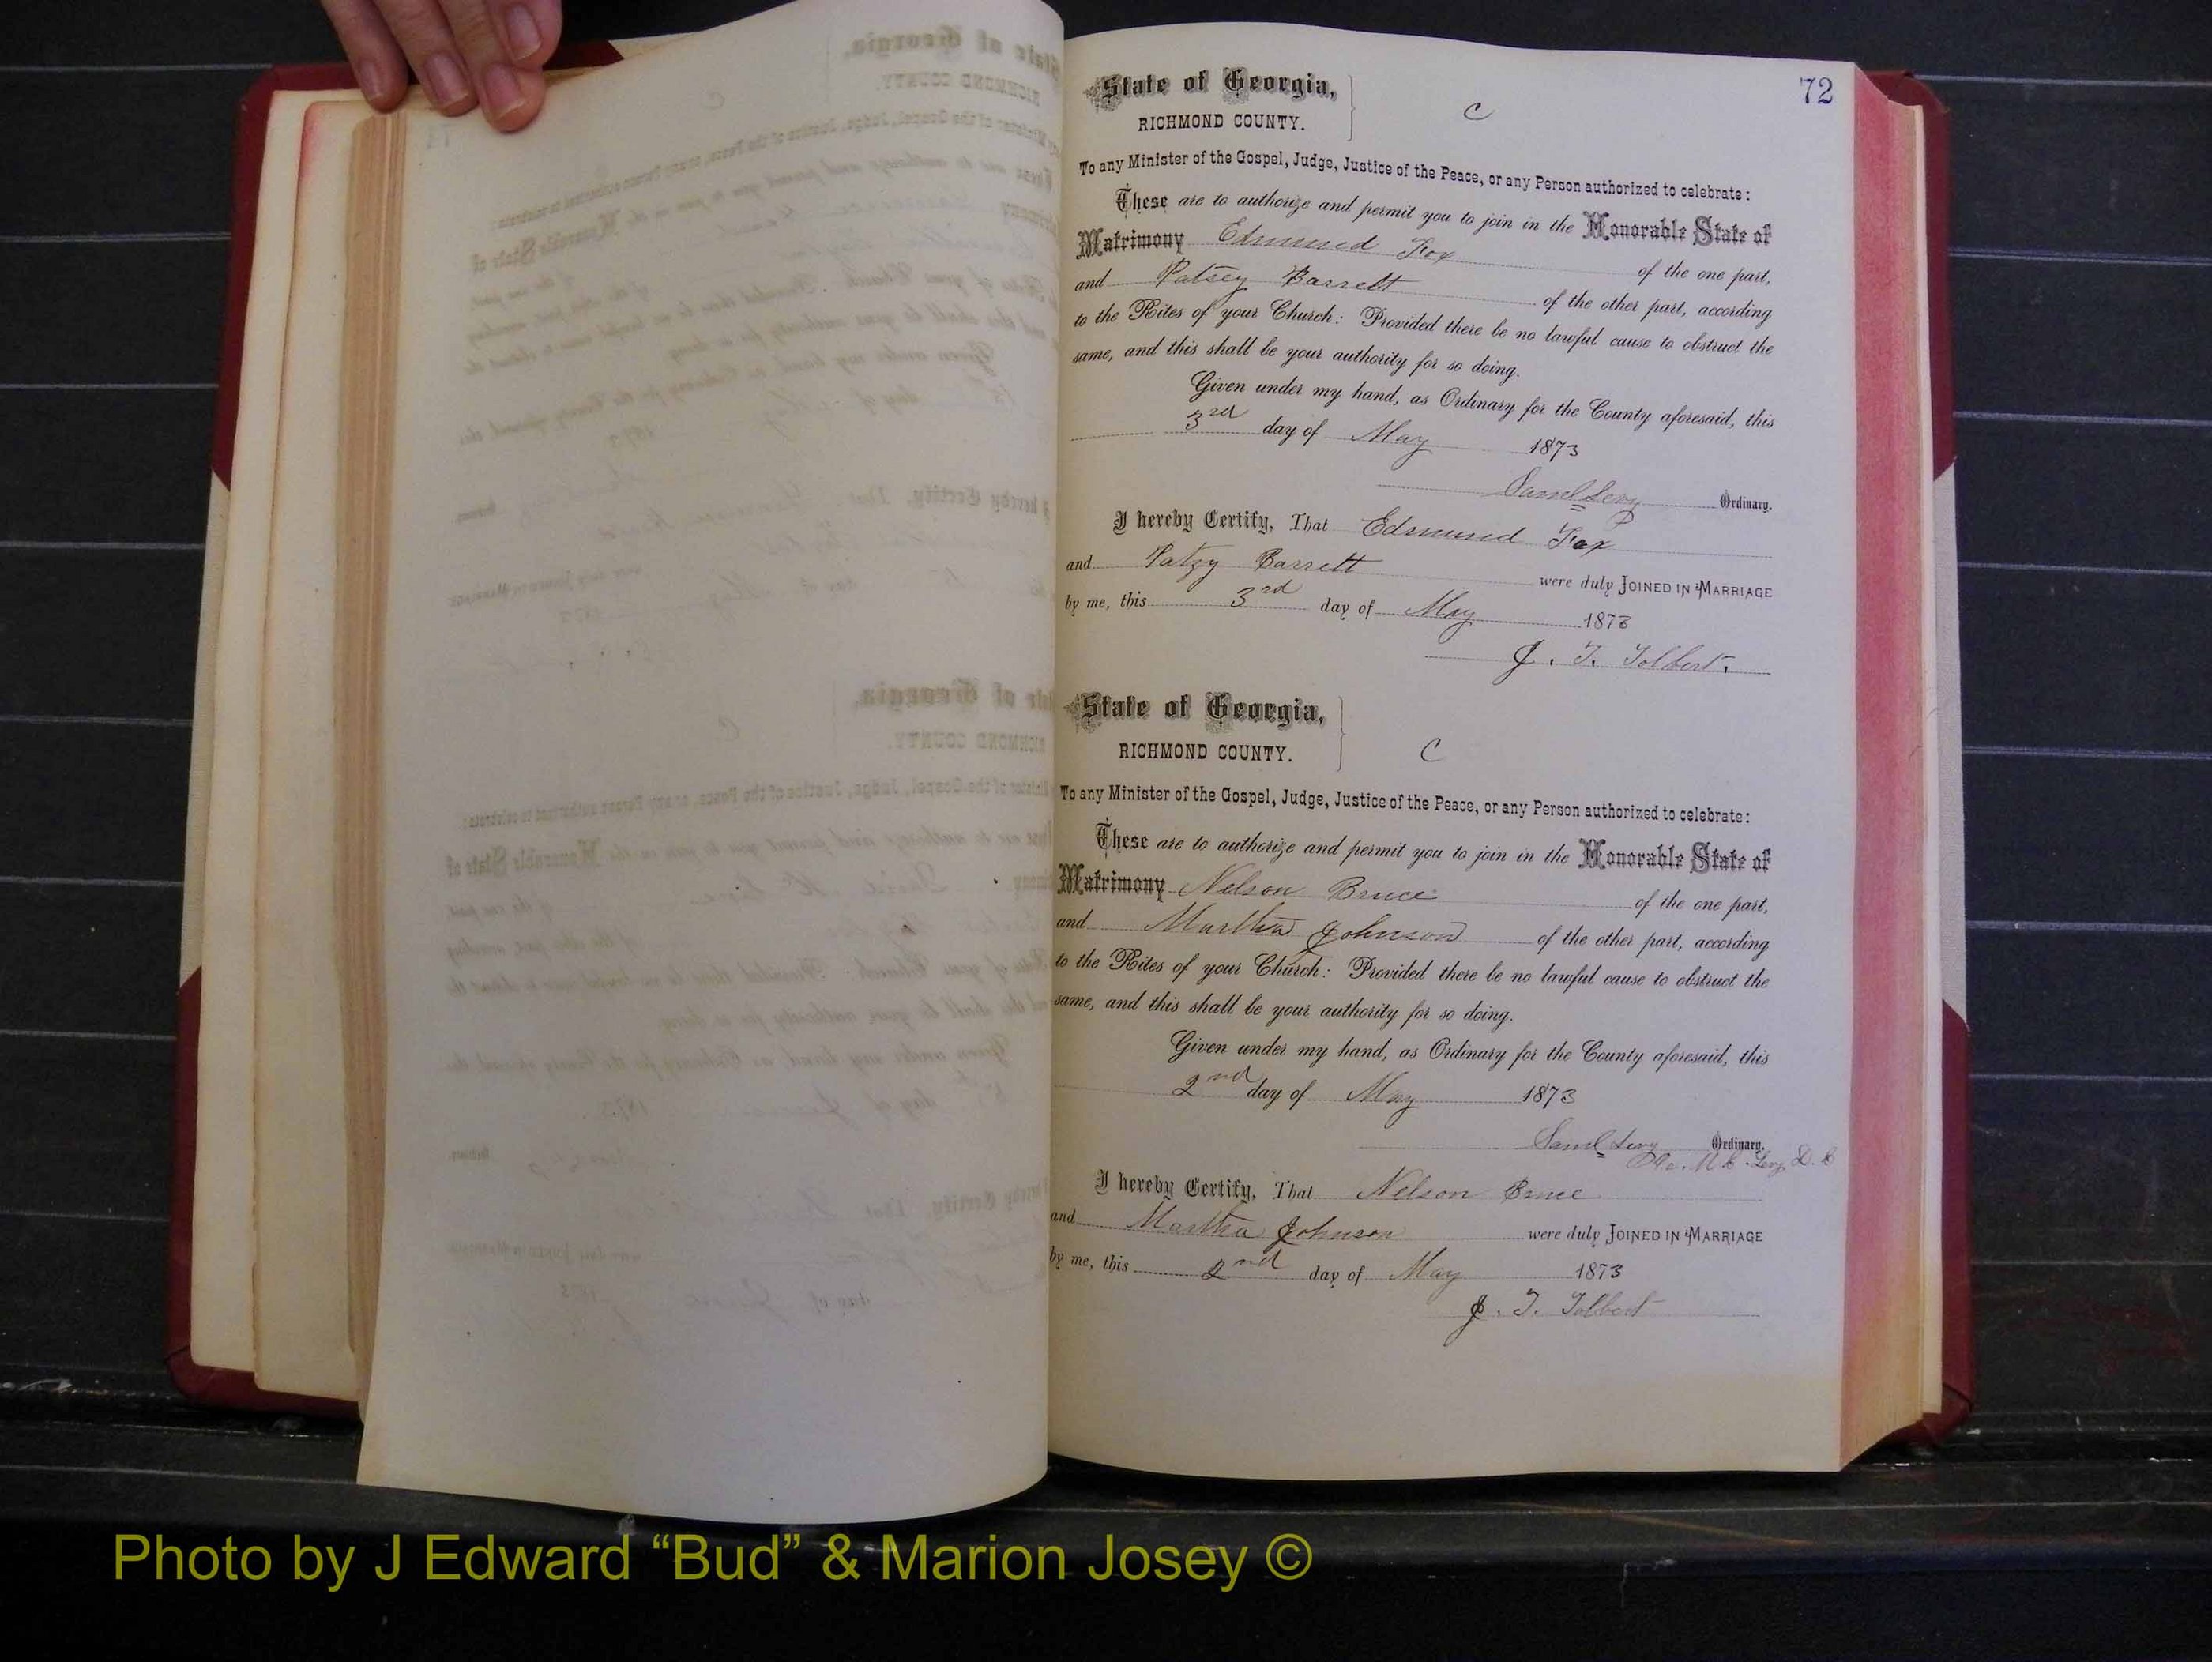 72
State of Georgia,
RICHMOND COUNTY.
C
To any Minister of the Gospel, Judge, Justice of the Peace, or any Person authorized to celebrate:
These are to authorize and permit you to join in the Honorable State of
Matrimony Edmund Fox of the one part,
and Patsey Barrett of the other part, according
to the Rites of your Church: Provided there be no lawful cause to obstruct the
same, and this shall be your authority for so doing.
Given under my hand, as Ordinary for the County aforesaid, this
3rd day of May 1873
Saml Levy Ordinary.
I hereby Certify, That Edmund Fox
and Patzy Barrett were duly JOINED IN MARRIAGE
by me, this 3rd day of May 1873
J. T. Tolbert.
State of Georgia,
RICHMOND COUNTY.
C
To any Minister of the Gospel, Judge, Justice of the Peace, or any Person authorized to celebrate:
These are to authorize and permit you to join in the Honorable State of
Matrimony Nelson Bruce of the one part,
and Martha Johnson of the other part, according
to the Rites of your Church: Provided there be no lawful cause to obstruct the
same, and this shall be your authority for so doing.
Given under my hand, as Ordinary for the County aforesaid, this
2nd day of May 1873
Saml Levy Ordinary.
Levy D. C
I hereby Certify, That Nelson Bruce
and Martha Johnson were duly JOINED IN MARRIAGE
by me, this 2nd day of May 1873
J. T. Tolbert
Photo by J Edward “Bud” & Marion Josey ©